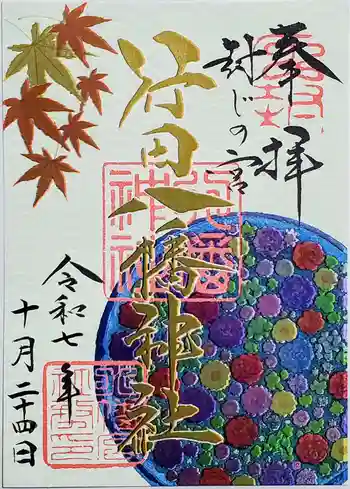 奉拝
封じの宮
行田八幡神社
令和七年
十月二十四日